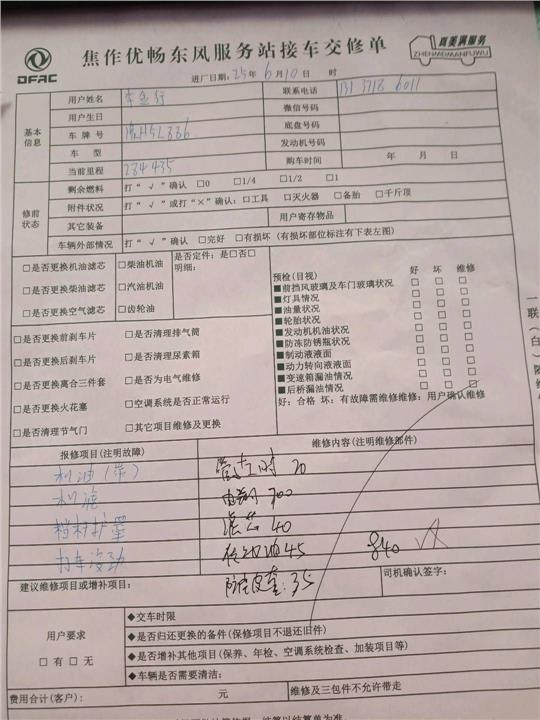 DFAC
焦作优畅东风服务站接车交修单
真美满服务
ZHENMEIMANFUWU
进厂日期:25年6月10日 时
基本信息
用户姓名 联系电话 131 3718 6011
用户生日 微信号码
车牌号 豫H52886 底盘号码
车型 发动机号码
当前里程 284435 购车时间 年 月 日
修前状态
剩余燃料 打“√”确认 □0 □1/4 □1/2 □1
附件状况 打“√”或打“×”确认:□工具 □灭火器 □备胎 □千斤顶
其它装备 用户寄存物品
车辆外部情况 打“√”确认 □完好 □有损坏(有损坏部位标注有下表左图)
□是否更换机油滤芯 □柴油机油 是否定件:是□否□
明细:
□是否更换柴油滤芯 □汽油机油
□是否更换空气滤芯 □齿轮油
预检(目视) 好 坏 维修
■前挡风玻璃及车门玻璃状况 □ □ □
■灯具情况 □ □ □
■油量状况 □ □ □
■轮胎状况 □ □ □
■发动机机油状况 □ □ □
■防冻防锈瓶状况 □ □ □
■制动液液面 □ □ □
■动力转向液液面 □ □ □
■变速箱漏油情况 □ □ □
■后桥漏油情况 □ □ □
好:合格 坏:有故障需维修维修:用户确认维修
□是否更换前刹车片 □是否清理排气筒
□是否更换后刹车片 □是否清理尿素箱
□是否更换离合三件套 □是否为电气维修
□是否更换火花塞 □空调系统是否正常运行
□是否清理节气门 □其它项目维修及更换
报修项目(注明故障) 维修内容(注明维修部件)
机油 工时 20
机滤 700
滤芯 40
打车没劲 油45 840
建议维修项目或增补项目: 防尘皮套:35 司机确认签字:
用户要求
□有 □无
◆交车时限
◆是否归还更换的备件(保修项目不退还旧件)
◆是否增补其他项目(保养、年检、空调系统检查、加装项目等)
◆车辆是否需要清洁:
费用合计(客户): 元 维修及三包件不允许带走
一联(白)